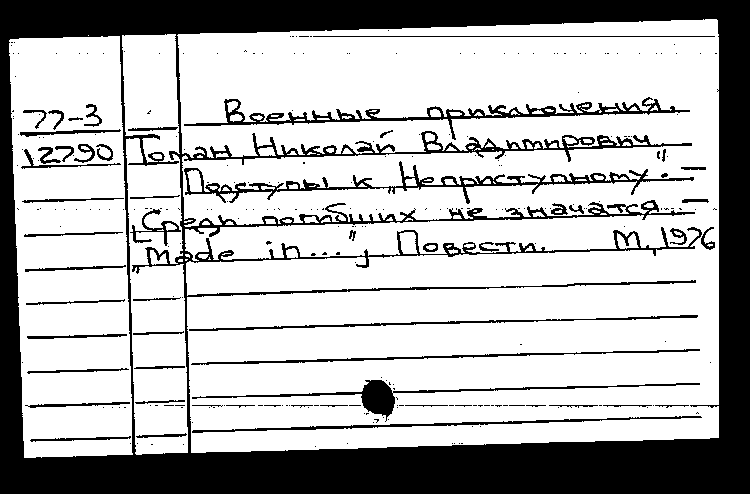 77-3 Военные приключения.
12790 Томан, Николай Владимирович.
Подступы к „Неприступному". —
[Среди погибших не значатся. —
„Made in..."] Повести. М., 1976